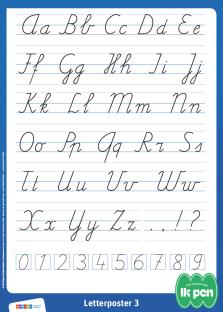 Aa Bb Cc Dd Ee
Ff Gg Hh Ii Jj
Kk Ll Mm Nn
Oo Pp Qq Rr Ss
Tt Uu Vv Ww
Xx Yy Zz . , ! ?
0 1 2 3 4 5 6 7 8 9
Letterposter 3
ik pen